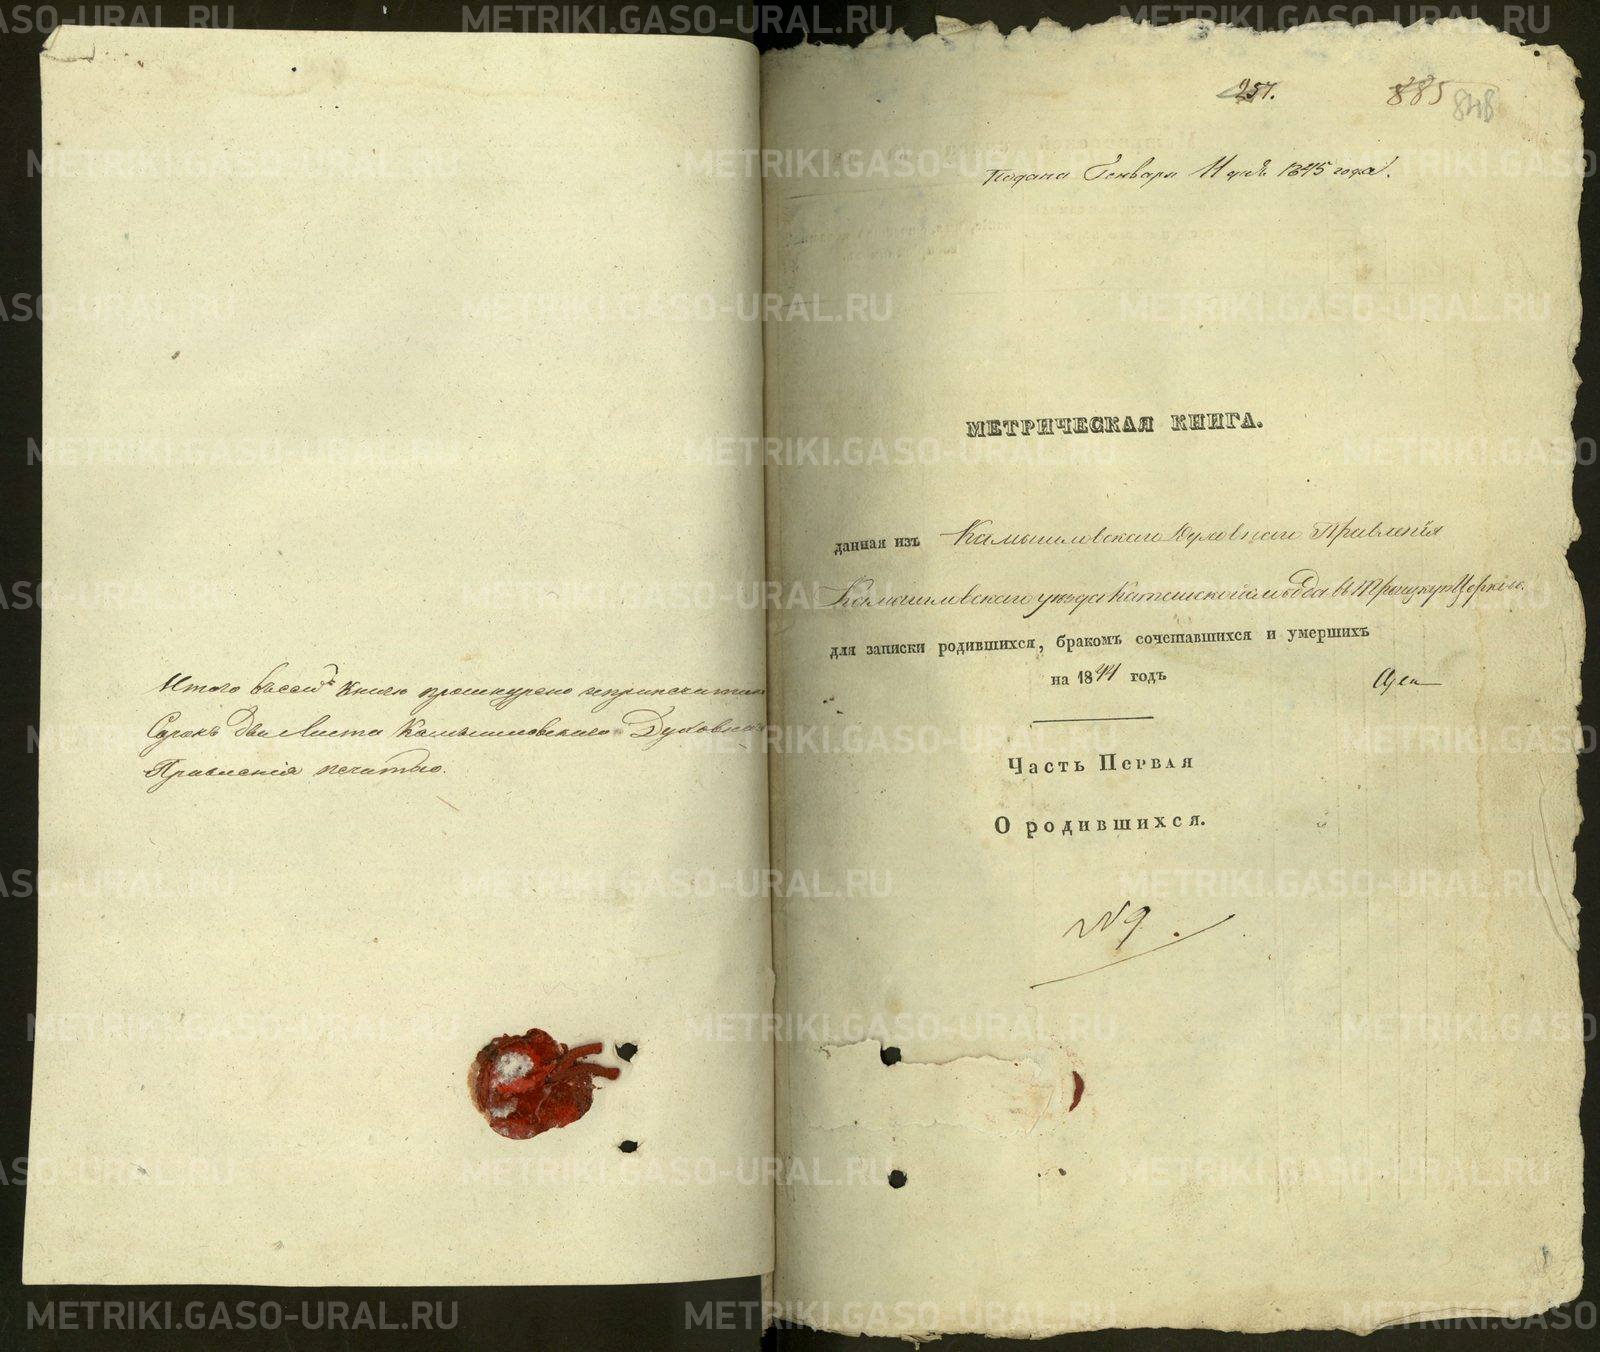 Итого въ сей книгѣ прошнурено и припечатано
Сорокъ два листа Камышловскаго Духовнаго
Правленія печатью.
257. 885 848
Подана Генваря 11 дня 1845 года.
МЕТРИЧЕСКАЯ КНИГА.
данная изъ Камышловскаго Духовнаго Правленія
Камышловскаго уѣзда Катайской слободы въ Церковь
для записки родившихся, бракомъ сочетавшихся и умершихъ
на 1844 годъ
Часть Первая
О родившихся.
№ 9.
METRIKI.GASO-URAL.RU